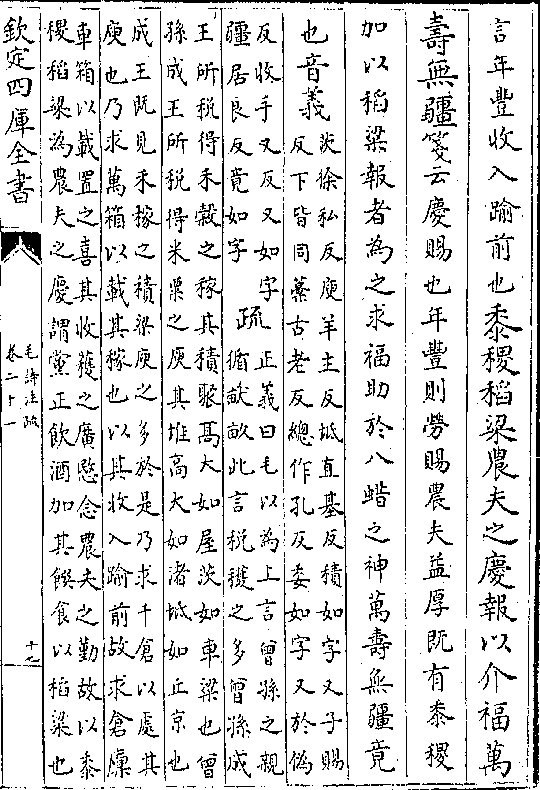 言年豐收入踰前也黍稷稻梁農夫之慶報以介福萬
壽無疆箋云慶賜也年豐則勞賜農夫益厚既有黍稷
加以稻粱報者為之求福助於八蜡之神萬壽無疆竟
也音義
茨徐私反庾羊主反坻直基反積如字又子賜
反下皆同藁古老反總作孔反委如字又於偽
反收手又反又如字
疆居良反竟如字
疏
正義曰毛以為上言曾孫之親
循畎畝此言稅穫之多曾孫成
王所稅得禾穀之稼其積聚高大如屋茨如車梁也曾
孫成王所稅得米粟之庾其堆高大如渚坻如丘京也
成王既見禾稼之積梁庾之多於是乃求千倉以處其
庾也乃求萬箱以載其稼也以其收入踰前故求倉廩
車箱以載置之喜其收穫之廣愍念農夫之勤故以黍
稷稻梁為農夫之慶謂黨正飲酒加其饌食以稻粱也
欽定四庫全書
毛詩注疏
卷二十一
十九